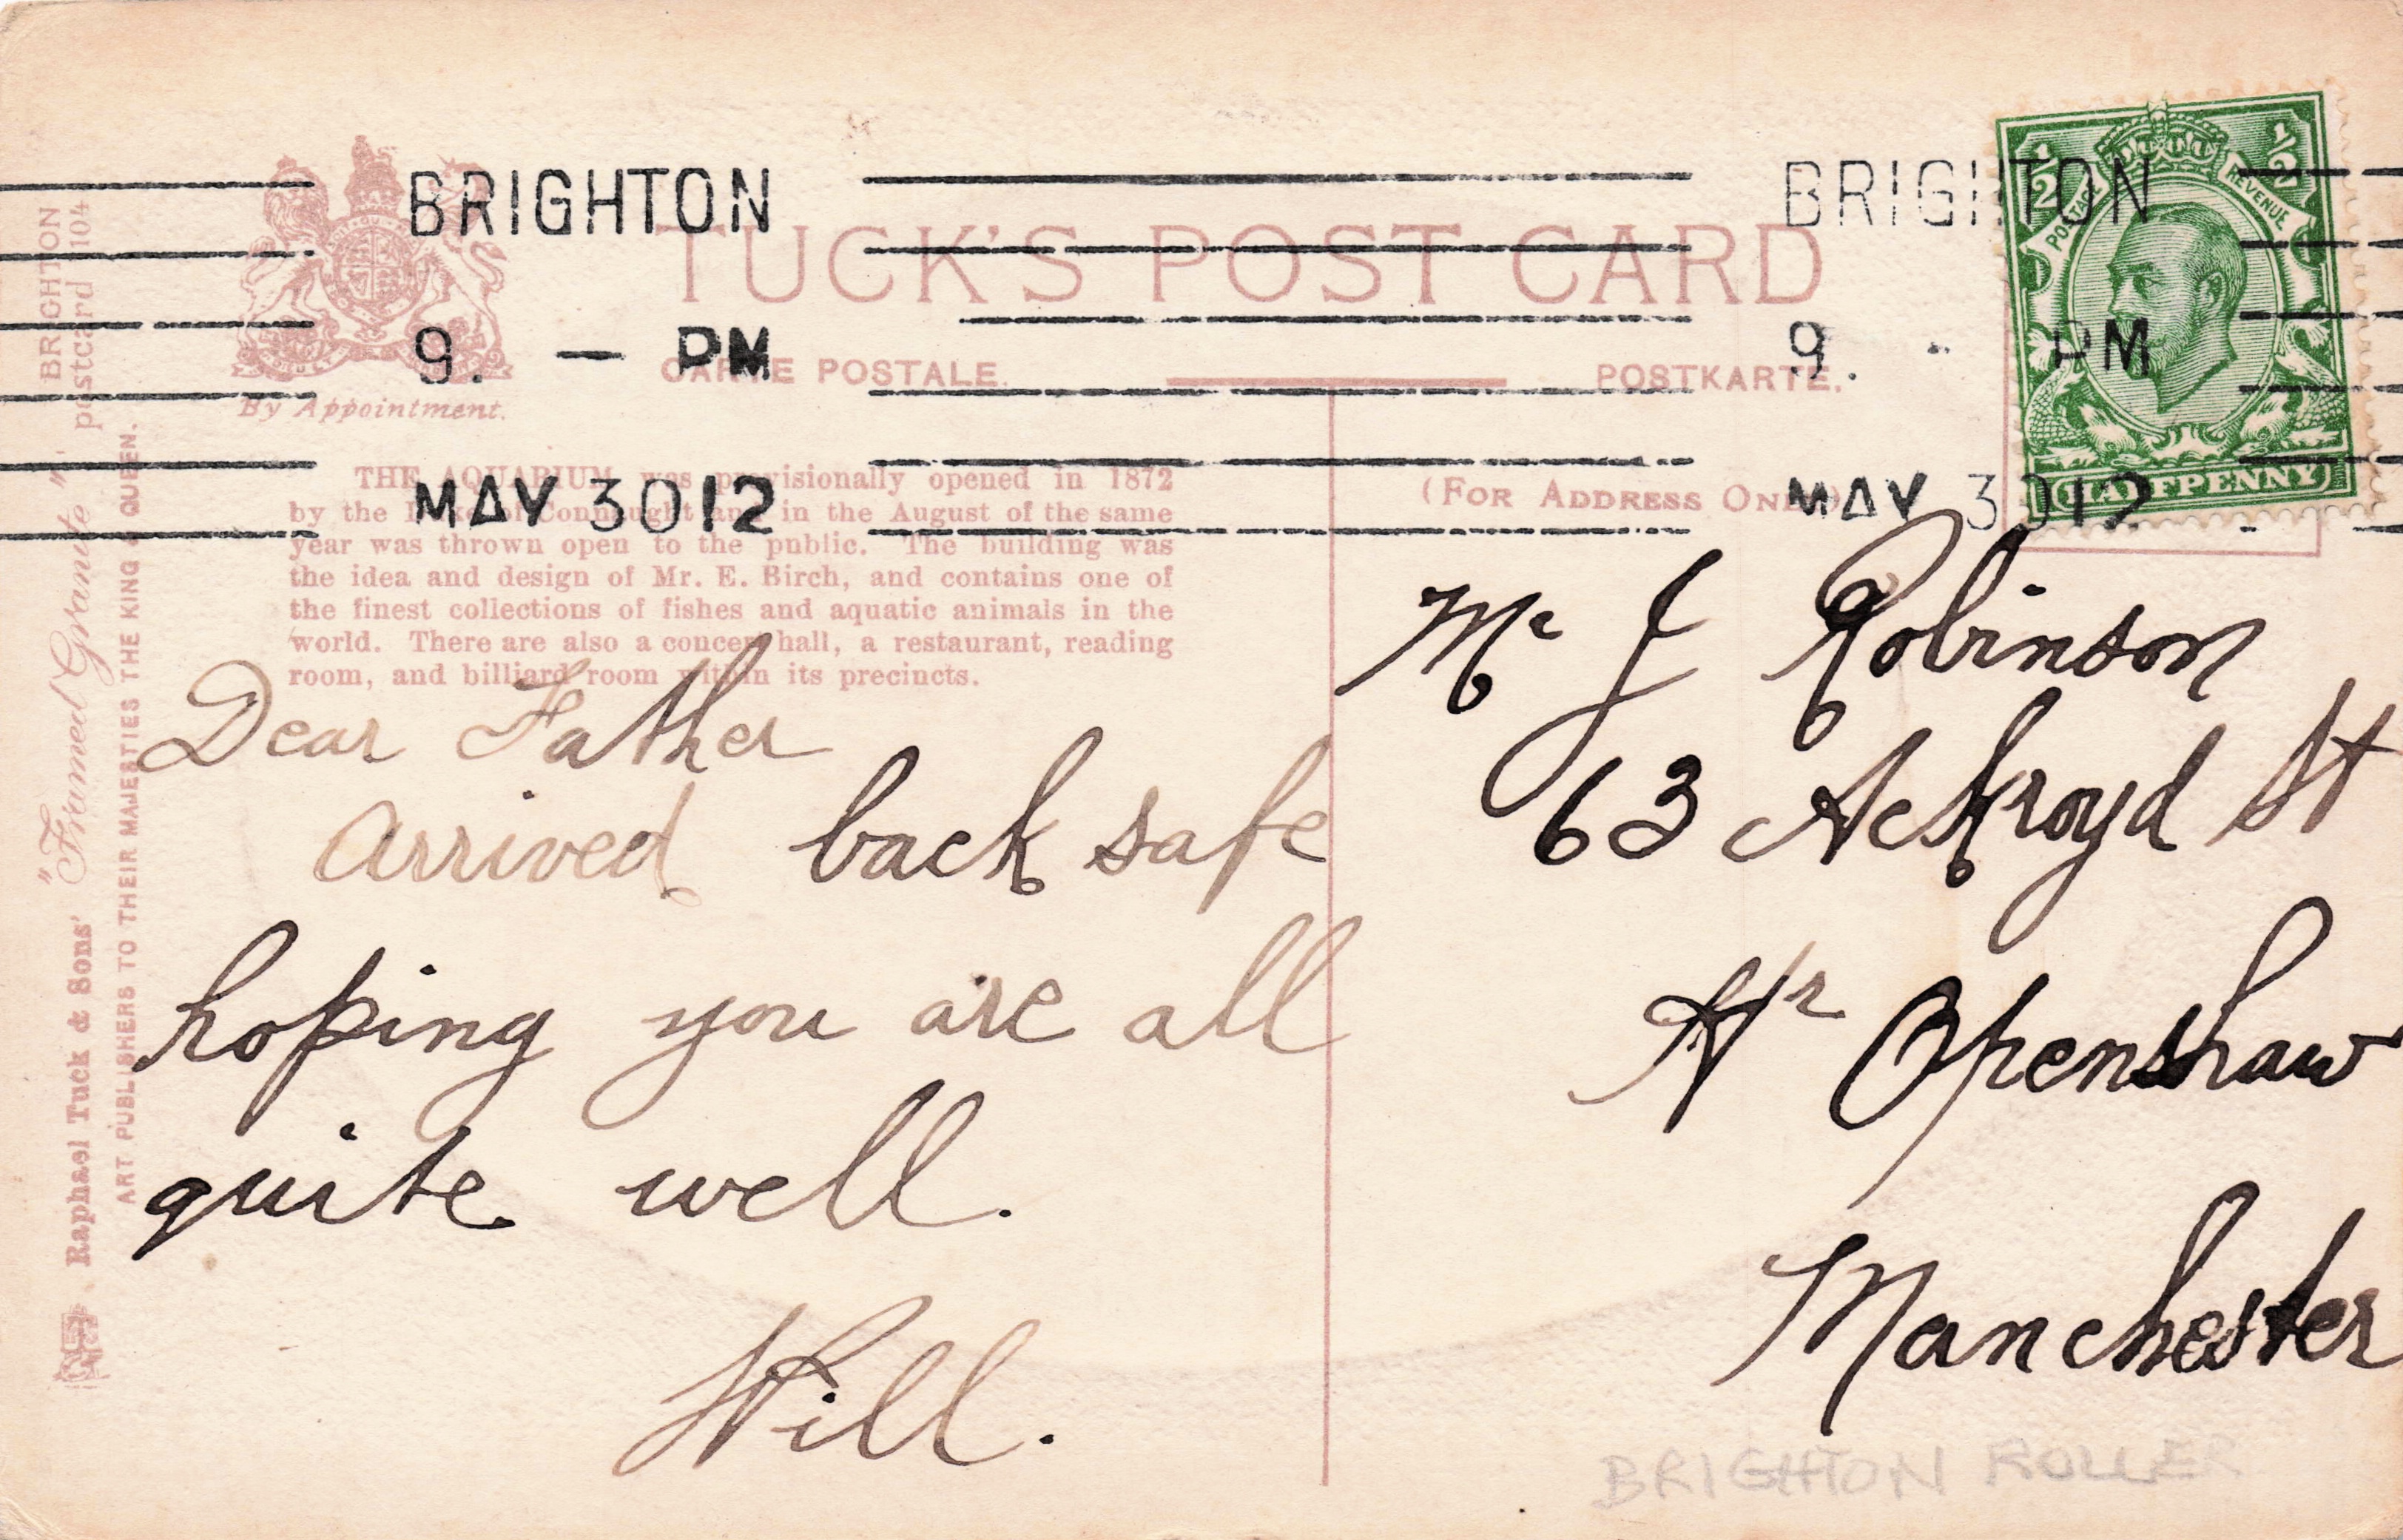 BRIGHTON
9. — PM
MAY 30 12
BRIGHTON
9. - PM
MAY 30 12
POSTAGE REVENUE
1/2 1/2
HALFPENNY
TUCK'S POST CARD
CARTE POSTALE.
POSTKARTE.
By Appointment.
(FOR ADDRESS ONLY)
THE AQUARIUM was provisionally opened in 1872
by the Duke of Connaught and in the August of the same
year was thrown open to the public. The building was
the idea and design of Mr. E. Birch, and contains one of
the finest collections of fishes and aquatic animals in the
world. There are also a concert hall, a restaurant, reading
room, and billiard room within its precincts.
Raphael Tuck & Sons' "Framed Gravure" BRIGHTON
postcard 104
ART PUBLISHERS TO THEIR MAJESTIES THE KING & QUEEN.
Dear Father
arrived back safe
hoping you are all
quite well.
Will.
Mr J Robinson
63 Ackroyd St
Hr Openshaw
Manchester
BRIGHTON ROLLER